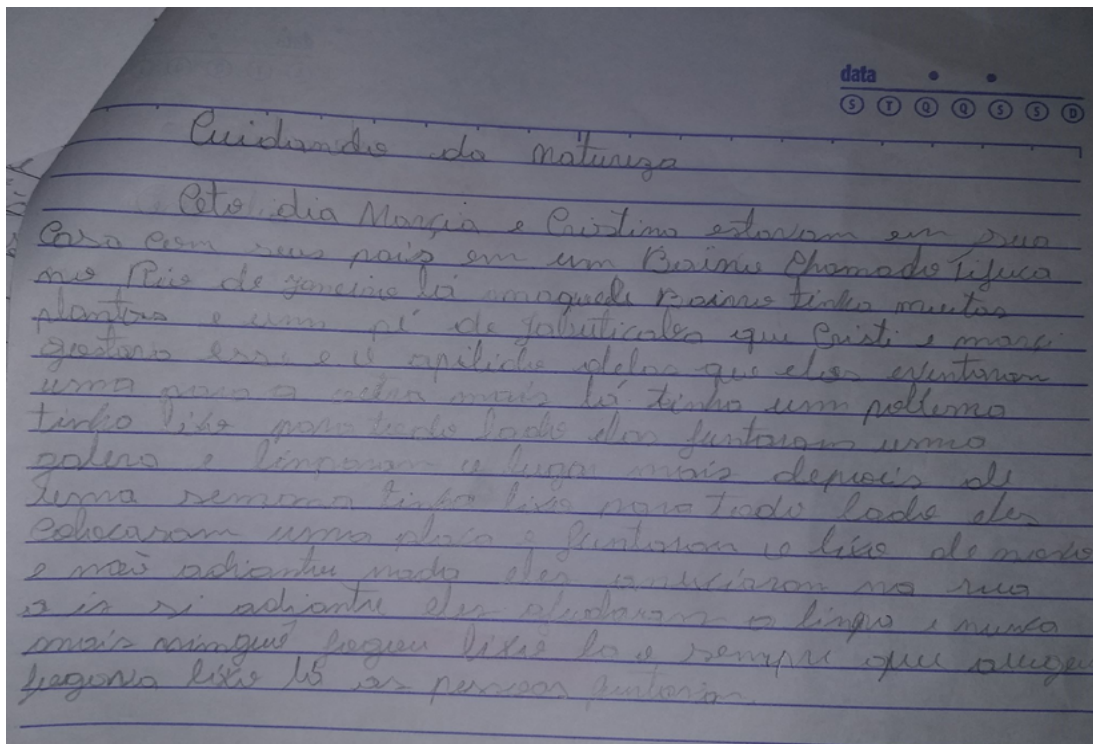 data
S T Q Q S S D
Cuidando da natureza
Ceto dia Marcia e Cristina estavam em sua
casa com seus pais em um Bairro chamado Tijuca
no Rio de janeiro lá naquele Bairro tinha muitas
plantas e um pé de que Cristi e marci
gostava esse e o apilido delas que elas eventaram
uma para a outra mais lá tinha um poblema
tinha lixo para todo lado elas juntaram uma
galera e limparam o lugar mais depois de
uma semana tinha lixo para todo lado eles
colocaram uma placa e juntaram o lixo de novo
e não adiantou nada eles na rua
si eles ajudaram a limpa e nunca
mais ninguê jogou lixo la e sempre que
jogava lixo lá as pessoas juntavam